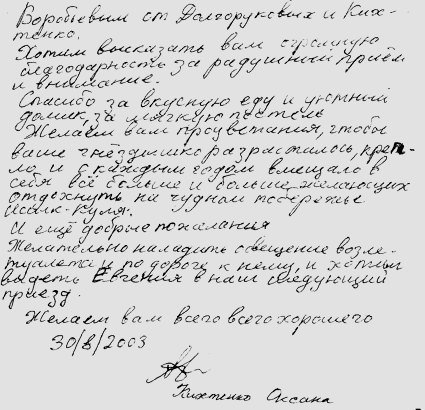 Воробьевым от Долгоруковых и Ких-
тенко.
Хотим высказать вам огромную
благодарность за радушный приём
и внимание.
Спасибо за вкусную еду и уютный
домик, за мягкую постель
Желаем вам процветания, чтобы
ваше гнёздышко разрасталось, креп-
ло и с каждым годом вмещало в
себя всё больше и больше желающих
отдохнуть на чудном побережье
Иссык-Куля.
И ещё добрые пожелания
Желательно наладить освещение возле
туалета и по дороге к нему, и хотим
видеть Евгения в наш следующий
приезд.
Желаем вам всего всего хорошего
30/8/2003
Кихтенко Оксана